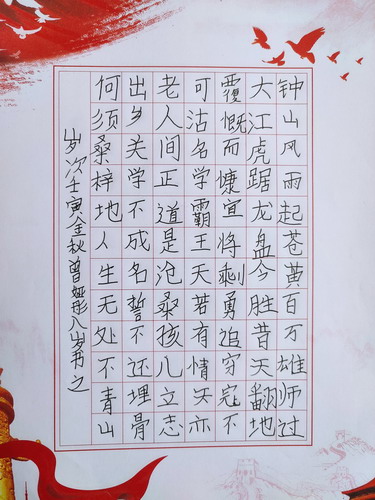 钟山风雨起苍黄百万雄师过
大江虎踞龙盘今胜昔天翻地
覆慨而慷宜将剩勇追穷寇不
可沽名学霸王天若有情天亦
老人间正道是沧桑孩儿立志
出乡关学不成名誓不还埋骨
何须桑梓地人生无处不青山
岁次壬寅金秋曾娅彤八岁书之